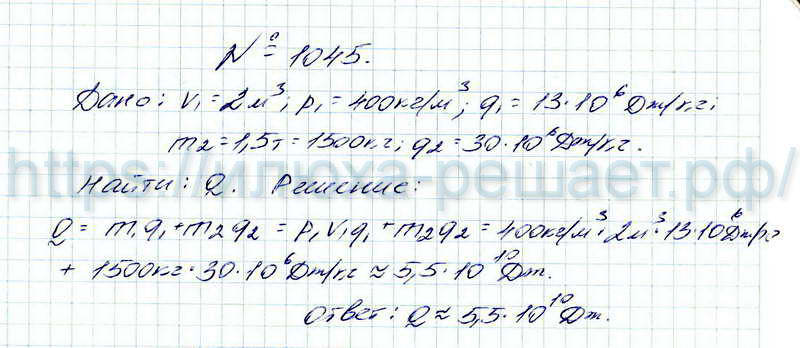 № 1045.
Дано: V₁ = 2 м³; ρ₁ = 400 кг/м³; q₁ = 13·10⁶ Дж/кг;
m₂ = 1,5 т = 1500 кг; q₂ = 30·10⁶ Дж/кг.
https://илюха-решает.рф/
Найти: Q. Решение:
Q = m₁q₁ + m₂q₂ = ρ₁V₁q₁ + m₂q₂ = 400 кг/м³·2м³·13·10⁶ Дж/кг
+ 1500 кг·30·10⁶ Дж/кг ≈ 5,5·10¹⁰ Дж.
Ответ: Q ≈ 5,5·10¹⁰ Дж.